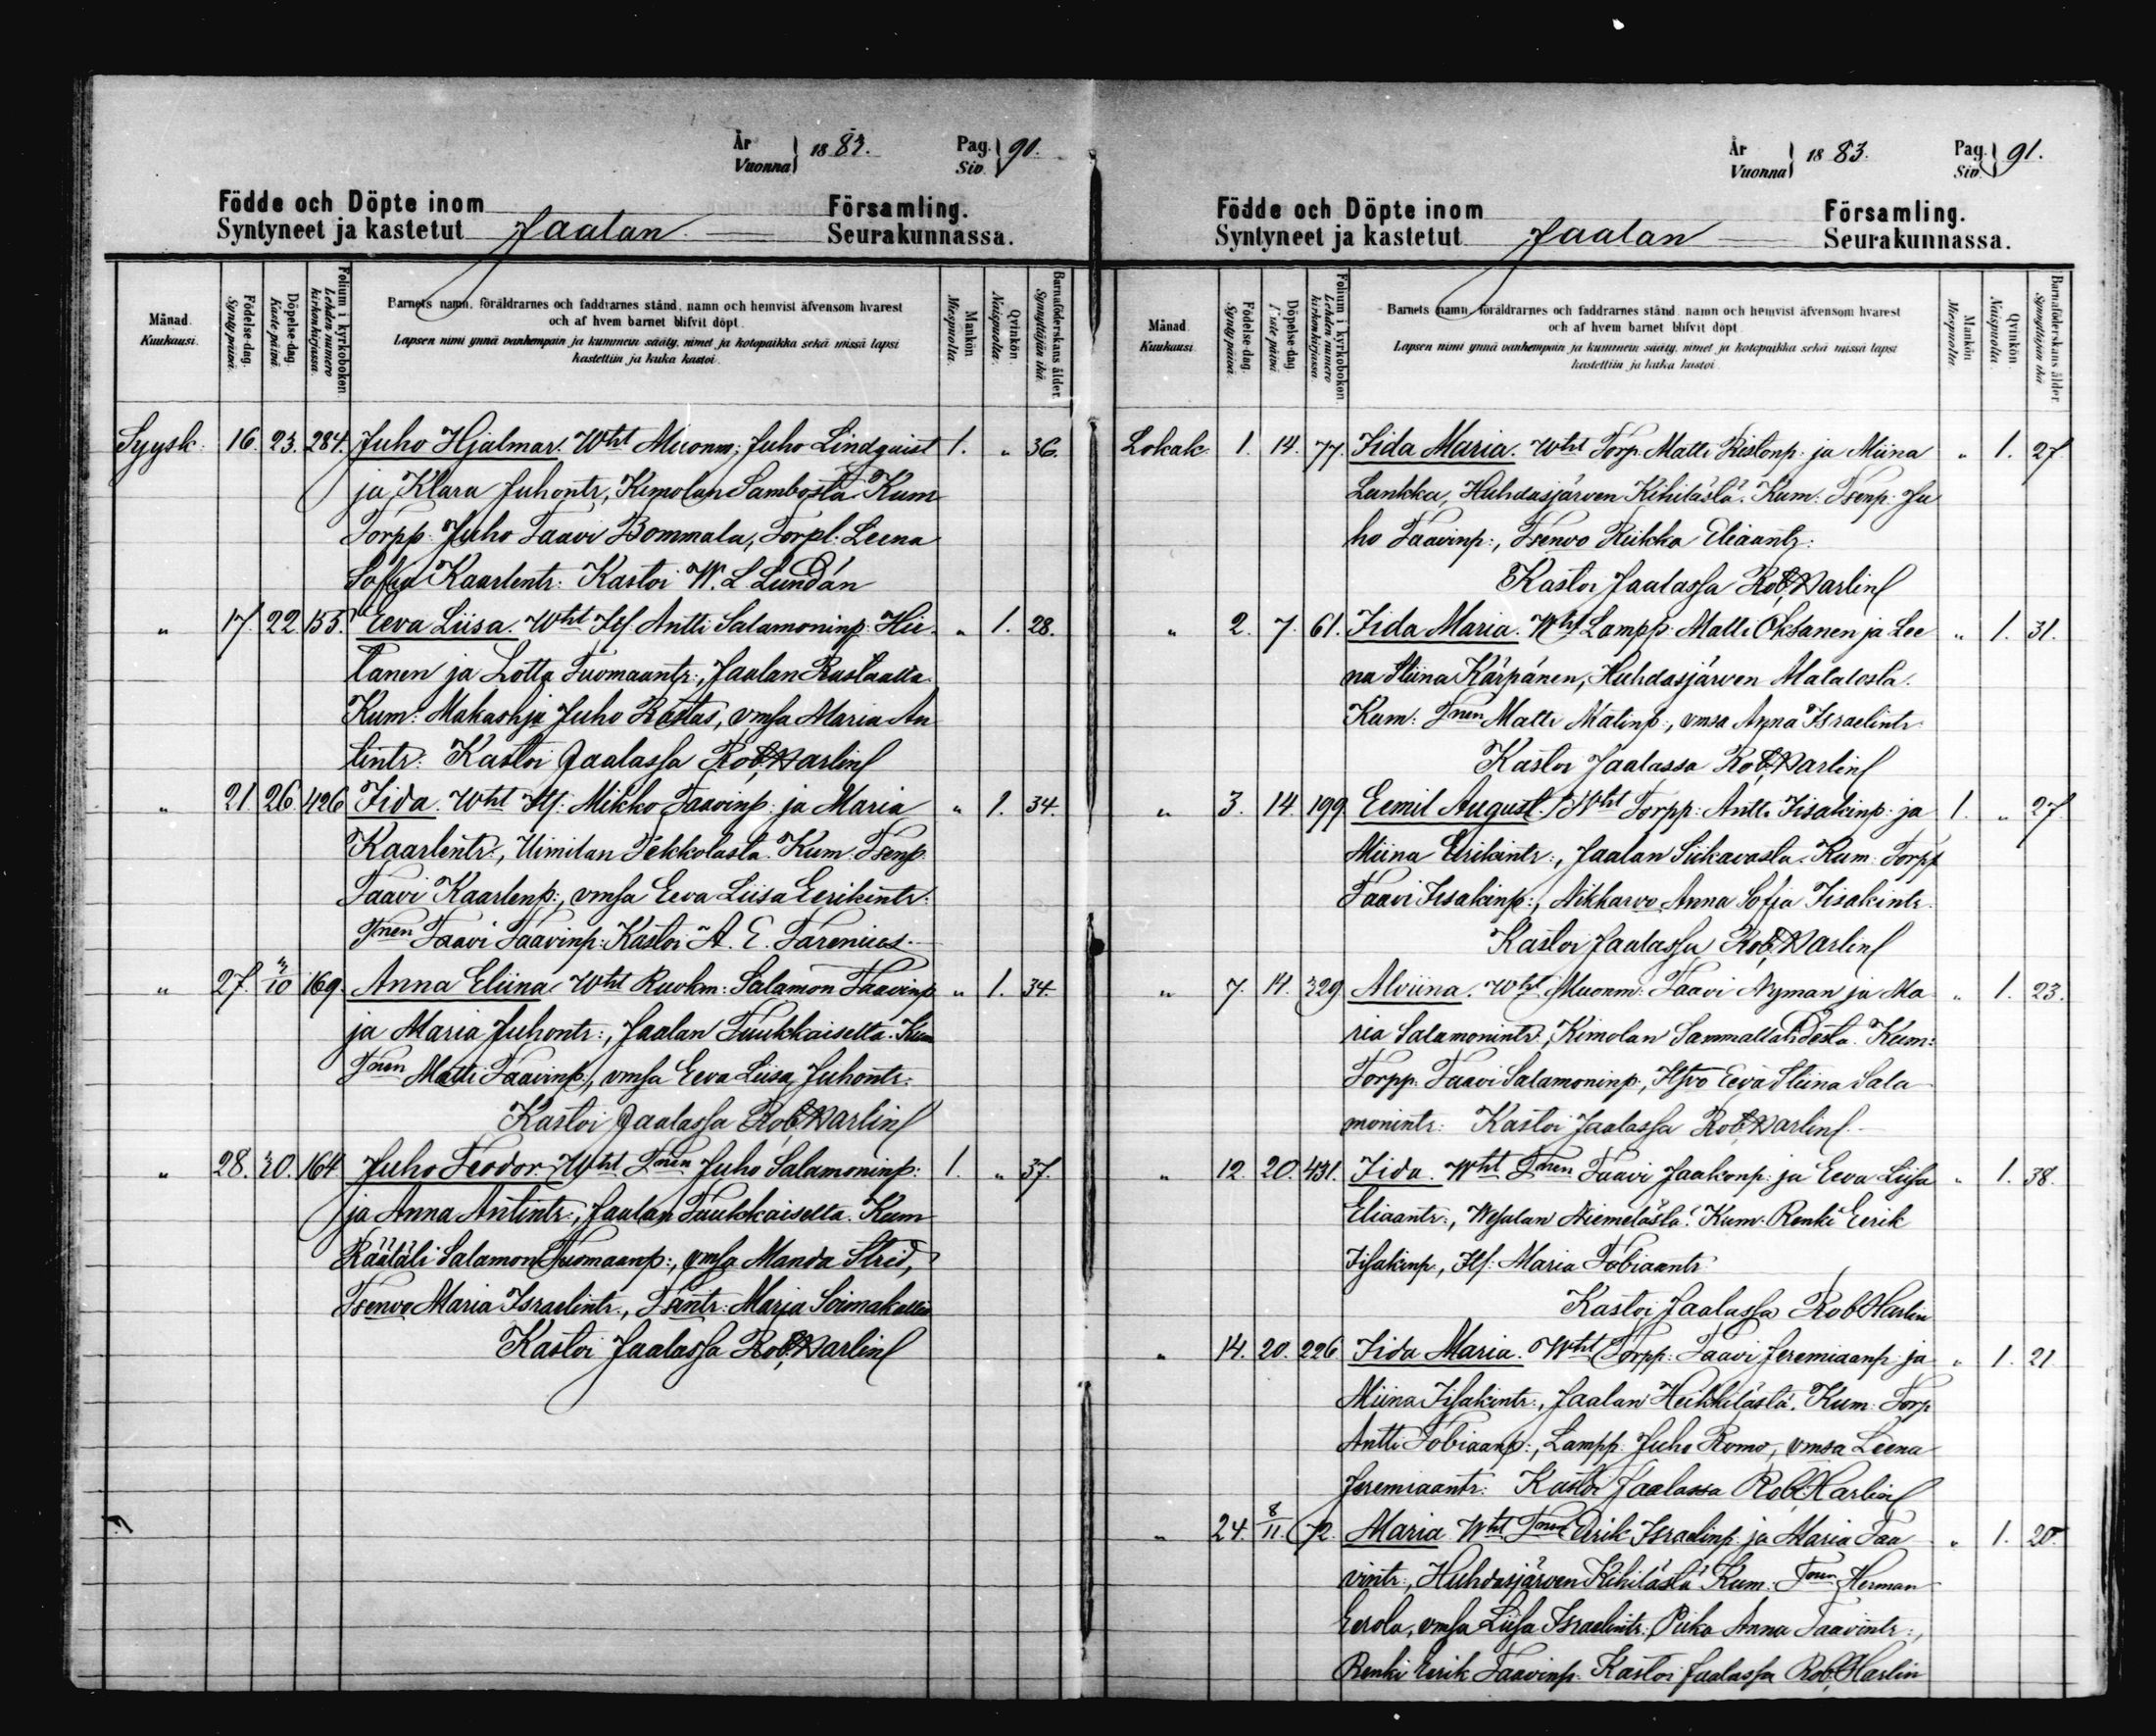 År
Vuonna 1883.
Pag.
Siv. 90.
Födde och Döpte inom
Syntyneet ja kastetut Jaalan
Församling.
Seurakunnassa.
Månad.
Kuukausi.
Födelse-dag.
Syntypäivä.
Döpelse-dag.
Kastepäivä.
Folium i kyrkoboken
Lehden numero
kirkonkirjassa.
Barnets namn, föräldrarnes och faddrarnes stånd, namn och hemvist äfvensom hvarest
och af hvem barnet blifvit döpt.
Lapsen nimi ynnä vanhempain ja kummein sääty, nimet ja kotopaikka sekä missä lapsi
kastettiin ja kuka kastoi.
Mankön
Miespuolia.
Qvinkön
Naispuolia.
Barnaföderskans ålder.
Synnyttäjän ikä.
Syysk. 16. 23. 284. Juho Hjalmar. Wht Muonm: Juho Lindquist 1. " 36.
ja Klara Juhontr, Kimolan Sambosta. Kum
Torpp: Juho Taavi Bommala, Torpl: Leena
Sofia Kaarlentr: Kastoi W. L Lundán
" 17. 22. 155. Eeva Liisa. Wht Itl. Antti Salamoninp: Hie " 1. 28.
tanen ja Lotta Tuomaantr:, Jaalan Rastaalta.
Kum: Makashja Juho Rastas, vmsa Maria An
tintr: Kastoi Jaalassa Rob. Harlin
" 21. 26. 426 Iida. Wht Itl: Mikko Taavinp: ja Maria " 1. 34.
Kaarlentr:, Uimilan Pekkolasta. Kum: Tsenp:
Taavi Kaarlenp:, vmsa Eeva Liisa Eerikintr:
Tnen Taavi Taavinp: Kastoi A. E. Farenius.
" 27. 3/10 169. Anna Eliina. Wht Ruokm: Salamon Taavinp " 1. 34.
ja Maria Juhontr:, Jaalan Tuukkaiselta. Kum
Tnen Matti Taavinp:, vmsa Eeva Liisa Juhontr:
Kastoi Jaalassa Rob. Harlin
" 28. 30. 164 Juho Teodor. Wht Tnen Juho Salamoninp: 1. " 37.
ja Anna Antintr:, Jaalan Tuukkaiselta. Kum
Räätäli Salamon Tuomaanp:, vmsa Manda Strid,
Tsenvo Maria Israelintr:, Tsintr: Marja
Kastoi Jaalassa Rob. Harlin
År
Vuonna 1883.
Pag.
Siv. 91.
Födde och Döpte inom
Syntyneet ja kastetut Jaalan
Församling.
Seurakunnassa.
Månad.
Kuukausi.
Födelse-dag.
Syntypäivä.
Döpelse-dag.
Kastepäivä.
Folium i kyrkoboken.
Lehden numero
kirkonkirjassa
Barnets namn, föräldrarnes och faddrarnes stånd, namn och hemvist äfvensom hvarest
och af hvem barnet blifvit döpt.
Lapsen nimi ynnä vanhempain ja kummein sääty, nimet ja kotopaikka sekä missä lapsi
kastettiin ja kuka kastoi.
Mankön
Miespuolia.
Qvinkön.
Naispuolia.
Barnaföderskans ålder.
Synnyttäjän ikä.
Lokak. 1. 14. 77. Iida Maria. Wht Torp: Matti Ristonp: ja Miina " 1. 27.
Lunkka, Huhdasjärven Kihilästä. Kum: Tsenp: Ju
ho Taavinp:, Tsenvo Riikka Eliaantr:
Kastoi Jaalassa Rob. Harlin
" 2. 7. 61. Iida Maria. Wht Lampp: Matti Oksanen ja Lee " 1. 31.
na Stiina Kärpänen, Huhdasjärven Malalosta.
Kum: Tnen Matti Matinp:, vmsa Anna Israelintr:
Kastoi Jaalassa Rob. Harlin
" 3. 14. 199. Eemil August. Wht Torpp: Antti Iisakinp: ja 1. " 27.
Miina Eerikintr:, Jaalan Siikavasta. Kum: Torpp
Taavi Iisakinp:, Nikkarvo Anna Sofia Iisakintr.
Kastoi Jaalassa Rob. Harlin
" 7. 14. 329 Alviina. Wht Muonm: Taavi Nyman ja Ma " 1. 23.
ria Salamonintr:, Kimolan Sammallahdesta. Kum:
Torpp: Taavi Salamoninp:, Itsvo Eeva Stiina Sala
monintr: Kastoi Jaalassa Rob. Harlin
" 12. 20. 431. Iida. Wht Tnen Taavi Jaakonp: ja Eeva Liisa " 1. 38.
Eliaantr:, Wesalan Niemelästä. Kum: Renki Eerik
Iisakinp:, Itl: Maria Tobiaantr
Kastoi Jaalassa Rob Harlin
" 14. 20. 226 Iida Maria. Wht Torpp: Taavi Jeremiaanp: ja " 1. 21
Miina Iisakintr:, Jaalan Heikkilästä. Kum: Torp
Antti Tobiaanp:, Lampp: Juho Romo, vmsa Leena
Jeremiaantr: Kastoi Jaalassa Rob. Harlin
" 24. 8/11. 72. Maria Wht Tnen Eerik Israelinp: ja Maria Taa " 1. 20.
vintr:, Huhdasjärven Kihilästä Kum: Tnen Herman
Eerola, vmsa Liisa Israelintr:, Piika Anna Taavintr:,
Renki Eerik Taavinp: Kastoi Jaalassa Rob. Harlin